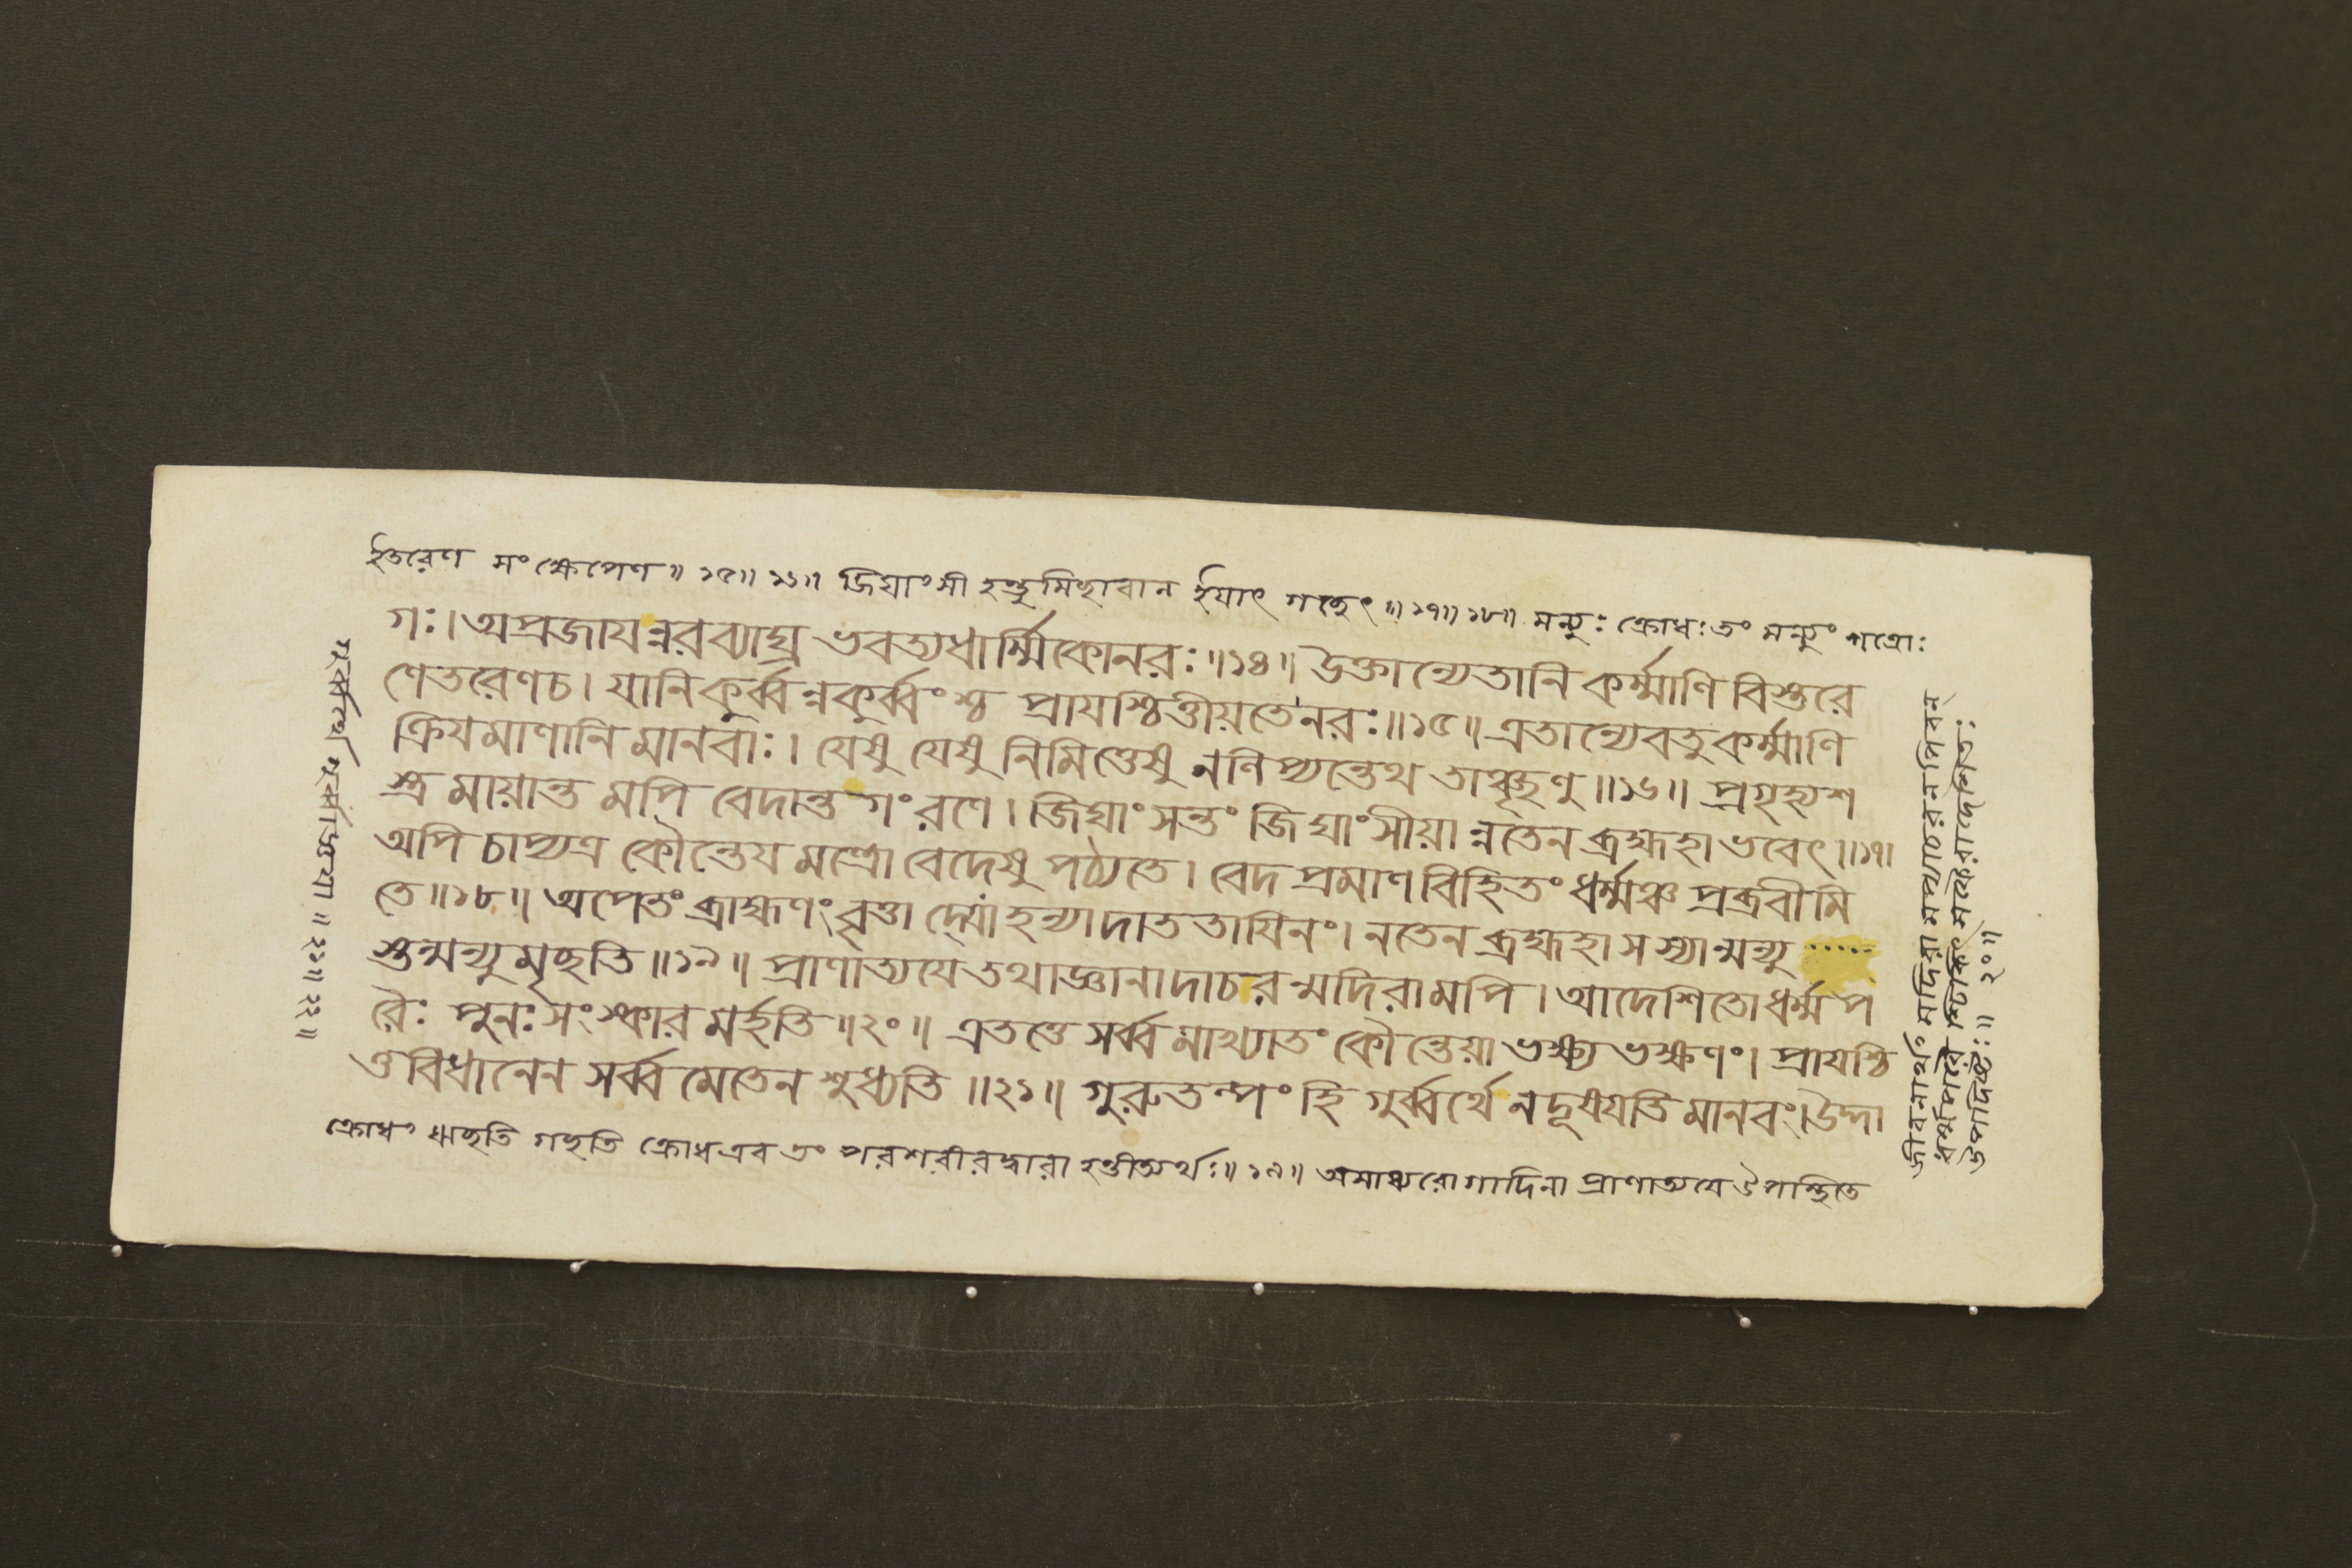 ইতরেণ সংক্ষেপেণ॥ ১৫॥ ১৬॥ জিঘাংসী হন্তুমিচ্ছাবান ইযাৎ গচ্ছেৎ॥ ১৭॥ ১৮॥ মন্যুঃ ক্রোধঃ তং মন্যুং শত্রোঃ
গঃ। অপ্রজাযন্নরব্যাঘ্র ভবত্যধার্ম্মিকোনরঃ॥১৪॥ উক্তান্যেতানি কর্ম্মাণি বিস্তরে
ণেতরেণচ। যানিকুর্ব্বন্নকুর্ব্বংশ্চ প্রাযশ্চিত্তীয়তেনরঃ॥১৫॥ এতান্যেবতুকর্ম্মাণি
ক্রিযমাণানি মানবাঃ। যেষু যেষু নিমিত্তেষু নলিপ্যন্তেথ তাঞ্ছৃণু॥১৬॥ প্রগৃহ্যশ
স্ত্র মায়ান্ত মপি বেদান্ত গং রণে। জিঘাংসন্তং জিঘাংসীয়া ন্নতেন ব্রহ্মহা ভবেৎ॥১৭॥
অপি চাপ্যত্র কৌন্তেয মন্ত্রো বেদেষু পঠ্যতে। বেদ প্রমাণ বিহিতং ধর্ম্মঞ্চ প্রব্রবীমি
তে॥১৮॥ অপেতং ব্রাহ্মণং বৃত্তা দ্যো হন্যাদাত তাযিনং। নতেন ব্রহ্মহা স স্যান্মন্যু
স্তন্মন্যু মৃচ্ছতি॥১৯॥ প্রাণাত্যযে তথাজ্ঞানাদাচরন্মদিরামপি। আদেশিতো ধর্ম্ম প
রৈঃ পুনঃ সংস্কার মর্হতি॥২০॥ এতত্তে সর্ব্ব মাখ্যাতং কৌন্তেয়া ভক্ষ্য ভক্ষণং। প্রাযশ্চি
ত্ত বিধানেন সর্ব্ব মেতেন শুধ্যতি॥২১॥ গুরুতল্পং হি গুর্ব্বর্থে নদূষযতি মানবং। উদ্দা
ক্রোধং ঋচ্ছতি গচ্ছতি ক্রোধএব তং পরশরীরদ্বারা হন্তীত্যর্থঃ॥ ১৯॥ অসাধ্যরোগাদিনা প্রাণাত্যযে উপস্থিতে
জীবনার্থং মদিরা
উপদিষ্টঃ॥ ২০॥
গুর্ব্বর্থে গুর্ব্বাজ্ঞযা॥ ২১॥ ২২॥